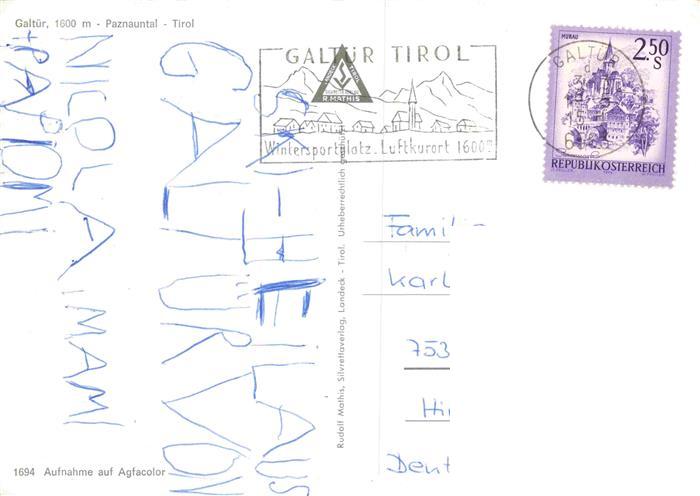 Galtür, 1600 m - Paznauntal - Tirol
GALTÜR TIROL
R. MATHIS
Wintersportplatz . Luftkurort 1600m
GALTÜR
MURAU
2.50
S
REPUBLIK ÖSTERREICH
SKI-HEIL AUS
GALTÜR VON
NICOLA, MAMI
+PAPI OMI
Rudolf Mathis, Silvrettaverlag, Landeck - Tirol. Urheberrechtlich geschützt
Famil -
Karl
753
Hi
1694 Aufnahme auf Agfacolor